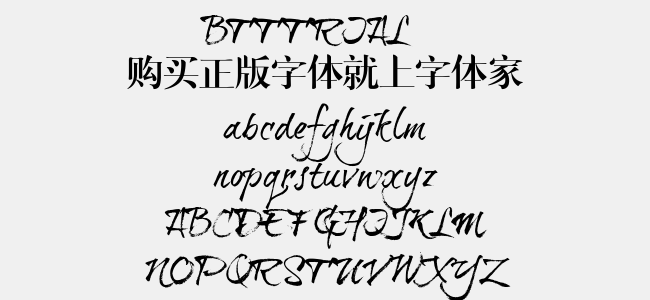 BTTTRIAL
购买正版字体就上字体家
abcdefghijklm
nopqrstuvwxyz
ABCDEFGHIJKLM
NOPQRSTUVWXYZ